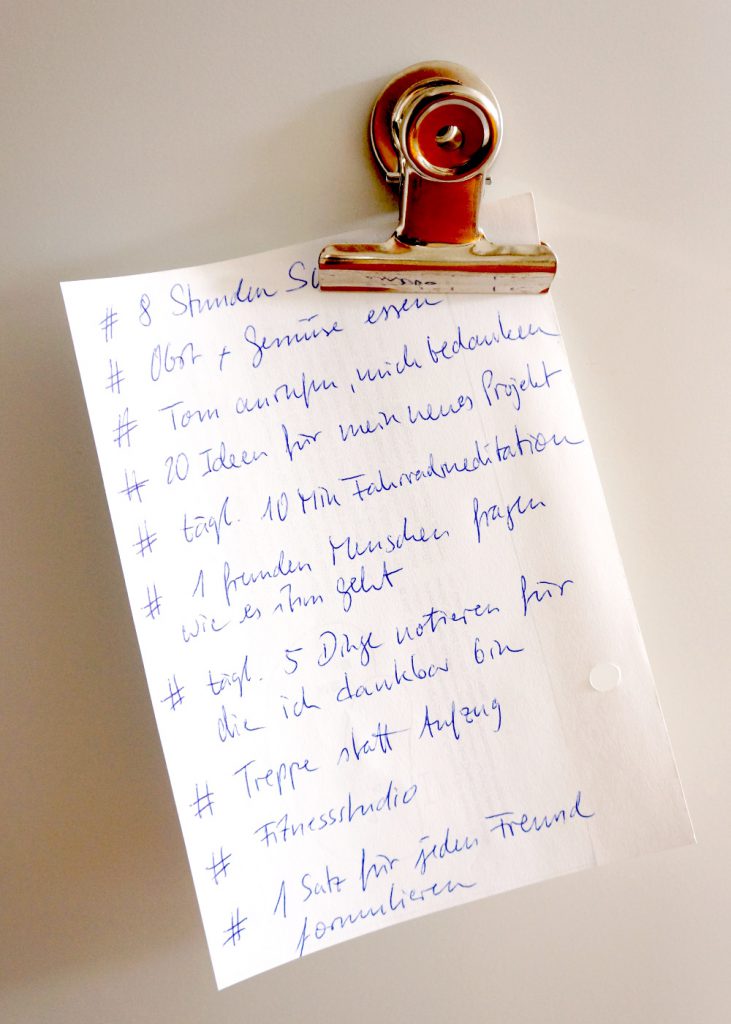 # 8 Stunden
# Obst + Gemüse essen
# Tom anrufen, mich bedanken
# 20 Ideen für mein neues Projekt
# tägl. 10 Min Fahrradmeditation
# 1 fremden Menschen fragen
wie es ihm geht
# tägl. 5 Dinge notieren für
die ich dankbar bin
# Treppe statt Aufzug
# Fitnessstudio
# 1 Satz für jeden Freund
formulieren